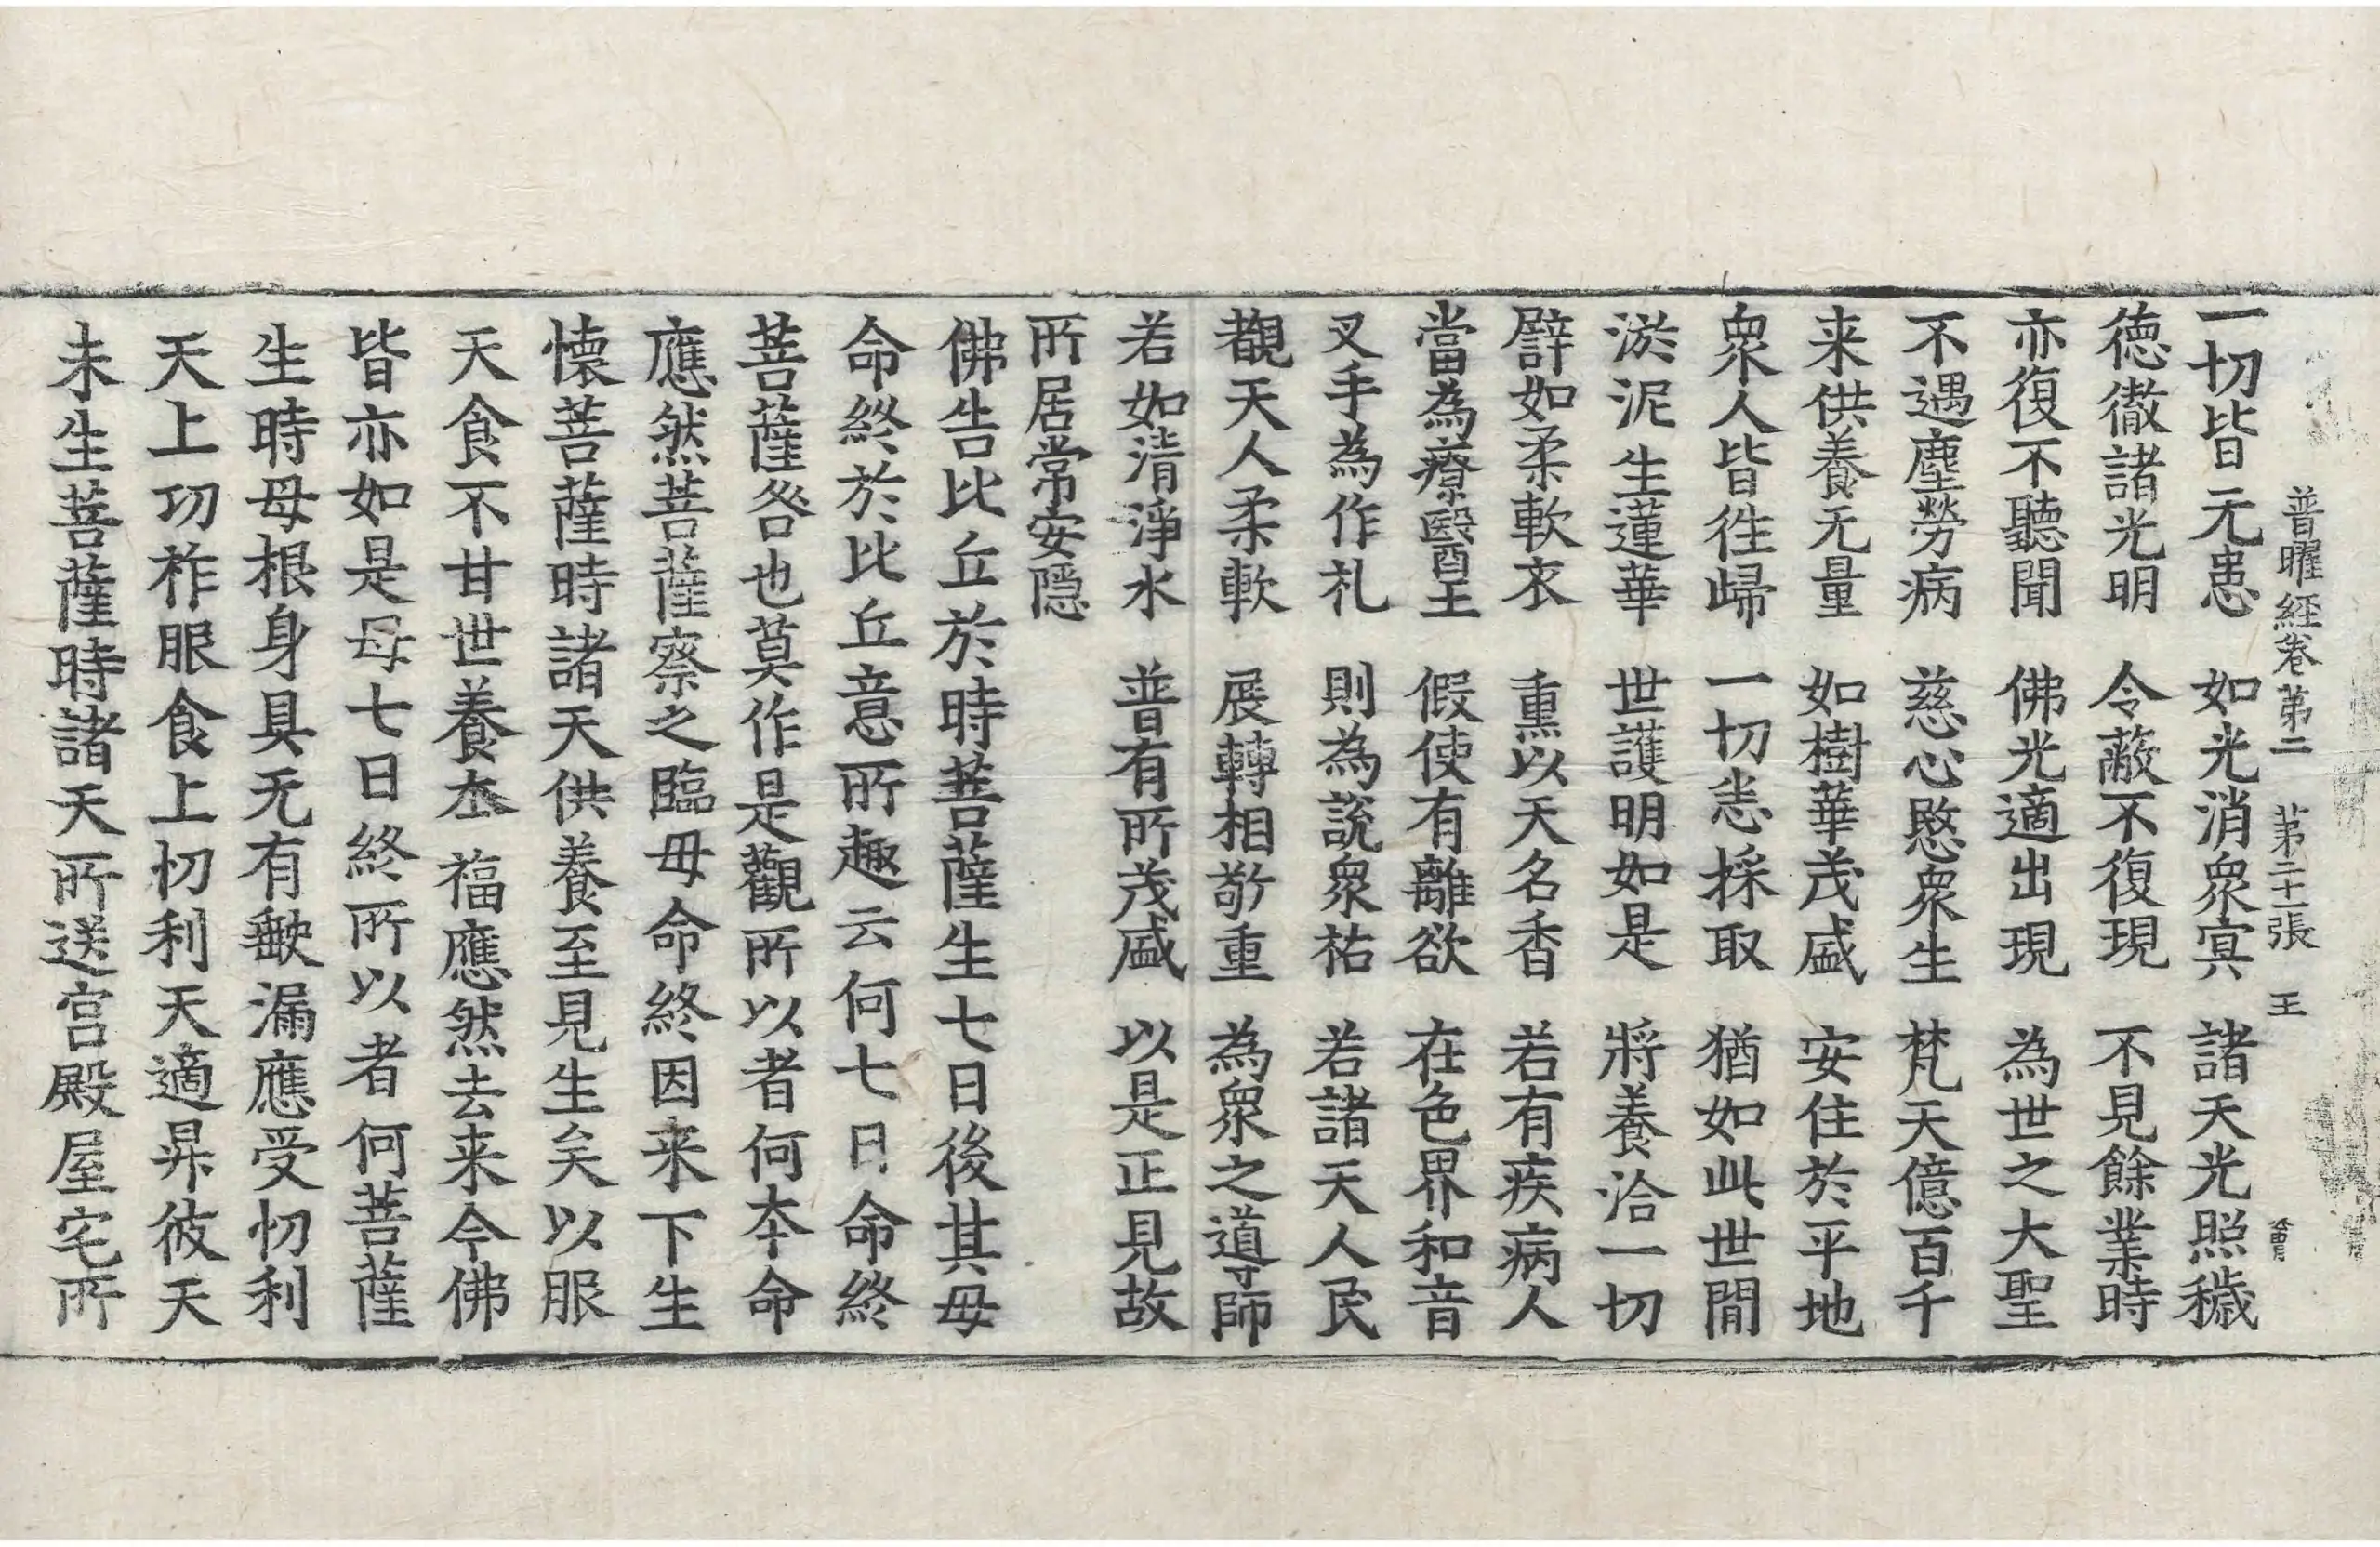 普曜經卷第二 第二十一張 王
一切皆无患 如光消衆冥 諸天光照穢
德徹諸光明 令蔽不復現 不見餘業時
亦復不聽聞 佛光適出現 為世之大聖
不遇塵勞病 慈心愍衆生 梵天億百千
来供養无量 如樹華茂盛 安住於平地
衆人皆往歸 一切恣採取 猶如此世間
淤泥生蓮華 世護明如是 將養洽一切
譬如柔軟衣 熏以天名香 若有疾病人
當為療醫王 假使有離欲 在色界和音
叉手為作礼 則為說衆祐 若諸天人民
覩天人柔軟 展轉相敬重 為衆之導師
若如清淨水 普有所茂盛 以是正見故
所居常安隱
佛告比丘於時菩薩生七日後其母
命終於比丘意所趣云何七日命終
菩薩咎也莫作是觀所以者何本命
應然菩薩察之臨母命終因来下生
懷菩薩時諸天供養至見生矣以服
天食不甘世養夲福應然去来今佛
皆亦如是母七日終所以者何菩薩
生時母根身具无有缺漏應受忉利
天上功祚服食上忉利天適昇彼天
未生菩薩時諸天所送宫殿屋宅所